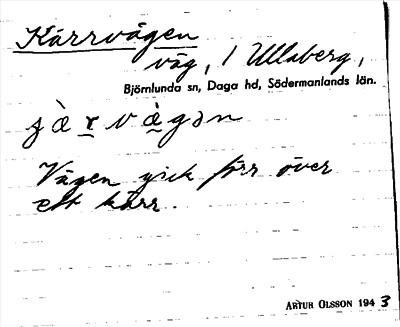 Kärrvägen
väg, / Ullaberg,
Björnlunda sn, Daga hd, Södermanlands län.
Vägen gick förr över
ett kärr.
ARTUR OLSSON 1943